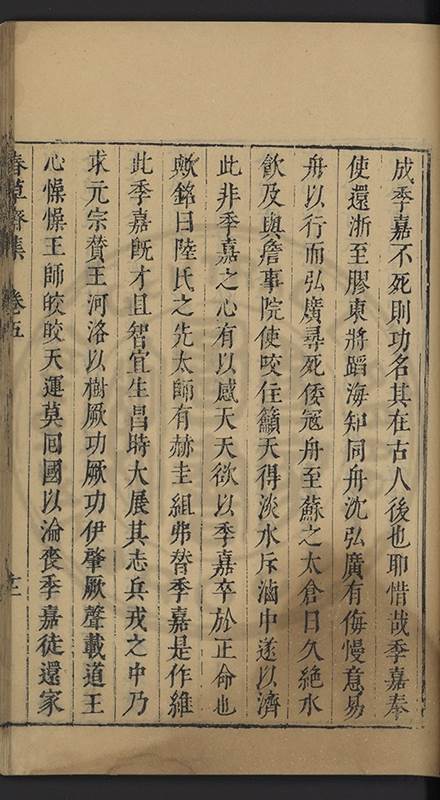 成季嘉不死則功名其在古人後也耶惜哉季嘉奉
使還浙至膠東將蹈海知同舟沈弘廣有侮慢意易
舟以行而弘廣尋死倭寇舟至蘇之太倉日久絶水
飮及與詹事院使咬住籲天得淡水斥滷中遂以濟
此非季嘉之心有以感天天欲以季嘉卒於正命也
歟銘曰陸氏之先太師有赫圭組弗替季嘉是作維
此季嘉旣才且智宜生昌時大展其志兵戎之中乃
求元宗賛王河洛以樹厥功厥功伊肇厥聲載道王
心懆懆王師皎皎天運莫囘國以淪喪季嘉徒還家
春草齋集 卷五 十二